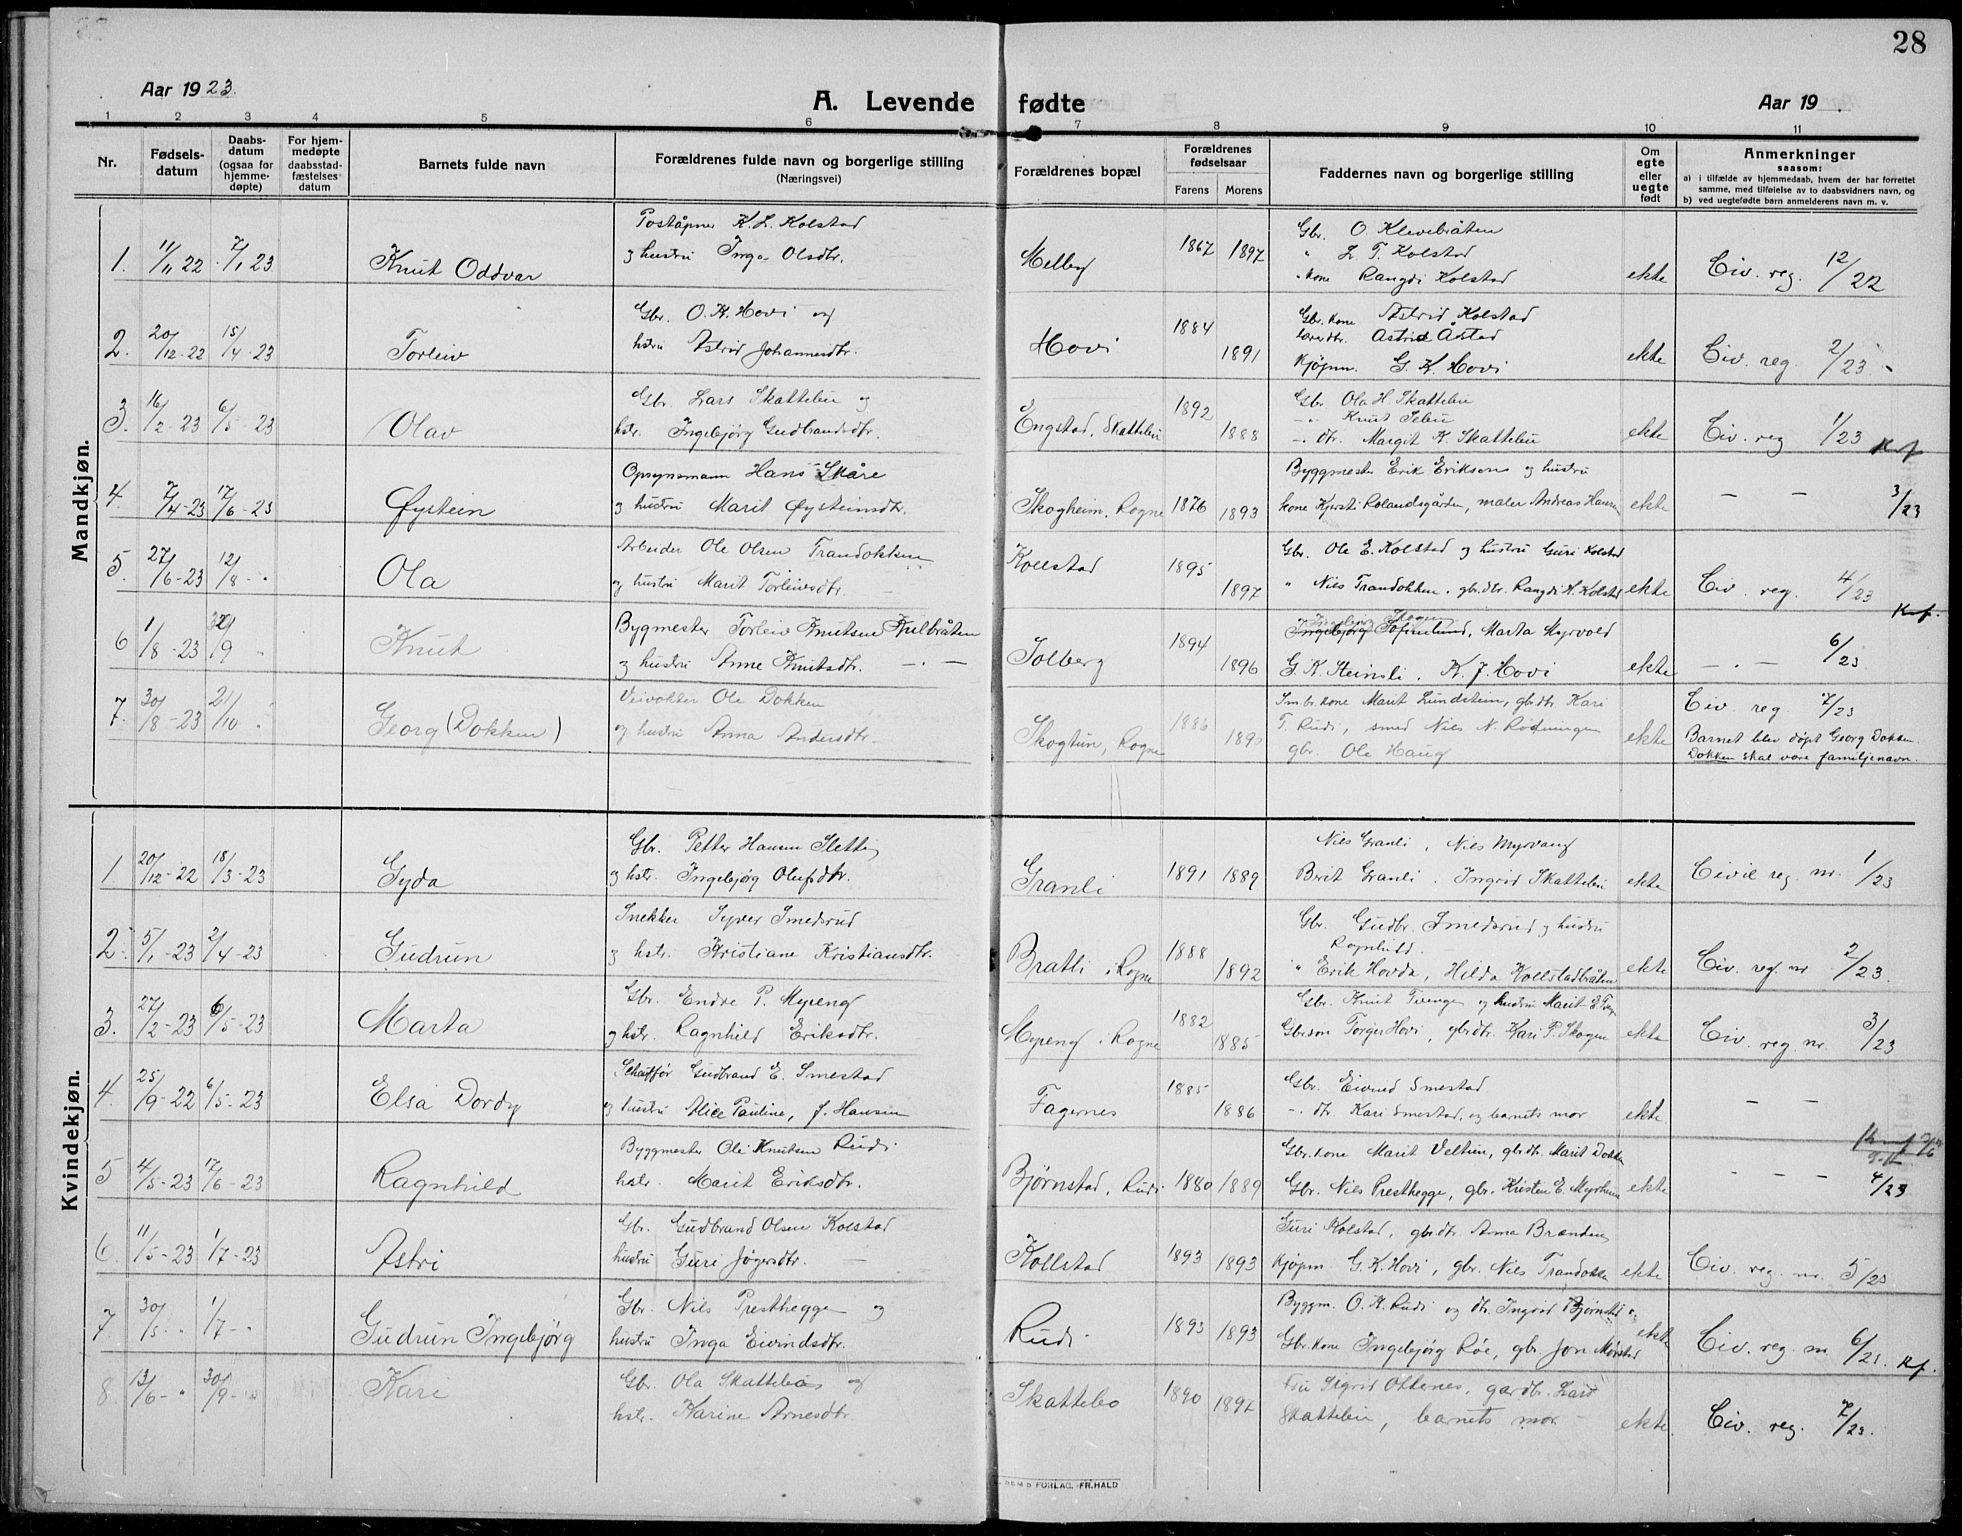 28
Aar 1923.
A. Levende fødte
Aar 19 .
1 2 3 4 5 6 7 8 9 10 11
Nr.
Fødsels-
datum
Daabs-
datum
(ogsaa for
hjemme-
døpte)
For hjem-
medøpte
daabsstad-
fæstelses
datum
Barnets fulde navn
Forældrenes fulde navn og borgerlige stilling
(Næringsvei)
Forældrenes bopæl
Forældrenes
fødselsaar
Farens Morens
Faddernes navn og borgerlige stilling
Om
egte
eller
uegte
født
Anmerkninger
saasom:
a) i tilfælde av hjemmedaab, hvem der har forrettet
samme, med tilføielse av to daabsvidners navn, og
b) ved uegtefødte børn anmelderens navn m. v.
Mandkjøn.
1. 11/11 22 7/1 23 Knut Oddvar
Poståpner K. L. Kolstad
og hustru Inga Olsdtr.
Melby 1867 1897
Gbr. O. Klevebråten
" L. T. Kolstad
" kone Rangdi Kolstad
ekte Civ. reg. 12/22
2. 20/12-22 15/4-23 Torleiv
Gbr. O. K. Hovi og
hstru Astrid Johannesdtr.
Hovi 1884 1891
Gbr. kone Astrid Kolstad
Astrid Åstad
Kjøpm. G. K. Hovi
ekte Civ. reg. 2/23
3. 16/2-23 6/5-23 Olav
Gbr. Lars Skattebu og
hstr. Ingebjørg Gudbrandsdtr.
Engstad, Skattebu 1892 1888
Gbr Ola H Skattebu
-"- Knut
-"- dtr. Margit K. Skattebu
ekte Civ. reg 1/23 Kf
4. 7/4-23 17/6-23 Øystein
Opsynsmann Hans Skåre
og hustru Marit Øysteinsdtr.
Skogheim, Rogne 1876 1893
Byggmester Erik Eriksen og hustru
kone Kjersti Rolandsgården, maler Andreas Hansen
ekte — — 3/23
5. 27/6-23 12/8 - " Ola
Arbeider Ole Olsen Trandokken
og hustru Marit Torleivsdtr.
Kollstad 1895 1897
Gbr. Ole E. Kolstad og hustru Guri Kolstad
" Nils Trandokken, gbr.dtr. Rangdi K. Kolstad
ekte Civ. reg. 4/23 Kf.
6 1/8-23 /9 Knut
Bygmester Torleiv Knutsen Kvelbråten
og hustru Anne Knutsdtr. — " —
Solberg 1894 1896
Marta Myrvold
G. K. Steinsli, K. J. Hovi
ekte — " — 6/23
7. 30/8-23 21/10 Georg (Dokken)
Veivokter Ole Dokken
og hustru Anna Andersdtr.
Skogtun, Rogne 1886
Smbr. kone Marit Lundstein, gbrdtr. Kari
T. Rudi, smed Nils N. Rogningen
gbr. Ole Haug
ekte Civ reg 7/23
Barnet blev døpt Georg Dokken.
Dokken skal være familjenavn.
Kvindekjøn.
1. 20/12-22 18/3-23 Gyda
Gbr. Petter Hansen Sletti
og hstr. Ingebjørg Olufsdtr.
Granli 1891 1889
Nils Granli, Nils Myrvang
Berit Granli, Ingrid Skattebu
ekte Civil reg. nr. 1/23
2. 5/1-23 2/4-23 Gudrun
Snekker Syver Smedsrud
og hstr. Kristiane Kristiansdtr.
Bratli, Rogne 1888 1892
Gbr. Gudbr. Smedsrud og hustru
Ragnhild
" Erik Hovda, Hilda Kollstadbråten
ekte Civ. reg. nr 2/23.
3. 27/2-23 6/5-23 Marta
Gbr. Endre P. Myreng
og hstr. Ragnhild Eriksdtr.
Myreng, Rogne 1882 1885
Gbr. Knut og hustru Marit
Gbrson Torger Hovi, gbrdtr. Kari P. Skogen
ekte Civ. reg. nr. 3/23
4. 25/9-22 6/5-23 Elsa Dordy
Schaffør Gudbrand E. Smestad
og hustru Alice Pauline, f. Hansen
Fagernes 1885 1886
Gbr. Eivind Smestad
-"- dtr. Kari Smestad, og barnets mor
ekte — —
5 4/5-23 17/6-23 Ragnhild
Byggmester Ole Knutsen Rudi
hstr. Marit Eriksdtr.
Bjørnstad, Rudi 1880 1889
Gbr. kone Marit Veltun, gbrdtr. Marit Dokken
Gbr. Nils Presthegge, gbr. Kristen E. Myrhum
ekte — — 4/23
6. 11/5-23 1/7-23 Astri
Gbr. Gudbrand Olsen Kolstad
hustru Guri Jøgersdtr.
Kollstad 1893 1893
Guri Kolstad, gbrdtr. Anna Branden
Kjøpm G. K. Hovi, gbr. Nils Trandokken
ekte Civ. reg. nr. 5/23
7 30/5 - " 1/7 - " Gudrun Ingebjørg
Gbr. Nils Presthegge og
hustru Inga Eivindsdtr.
Rudi 1893 1893
Byggm. O. K. Rudi og dtr. Ingrid Bjørnstad
Gbr. kone Ingebjørg Røe, gbr. Jon Mørstad
ekte Civ. reg. nr 6/23. Kf.
8. 13/6 - " 30/9 - " Kari
Gbr. Ola Skattebo og
hstr. Karine Arnesdtr.
Skattebo 1890 1897
Fru Sigrid Ottenes, gardbr. Lars
Skattebu, barnets mor
ekte. Civ. reg. 7/23.
FORLAG, FR. HALD